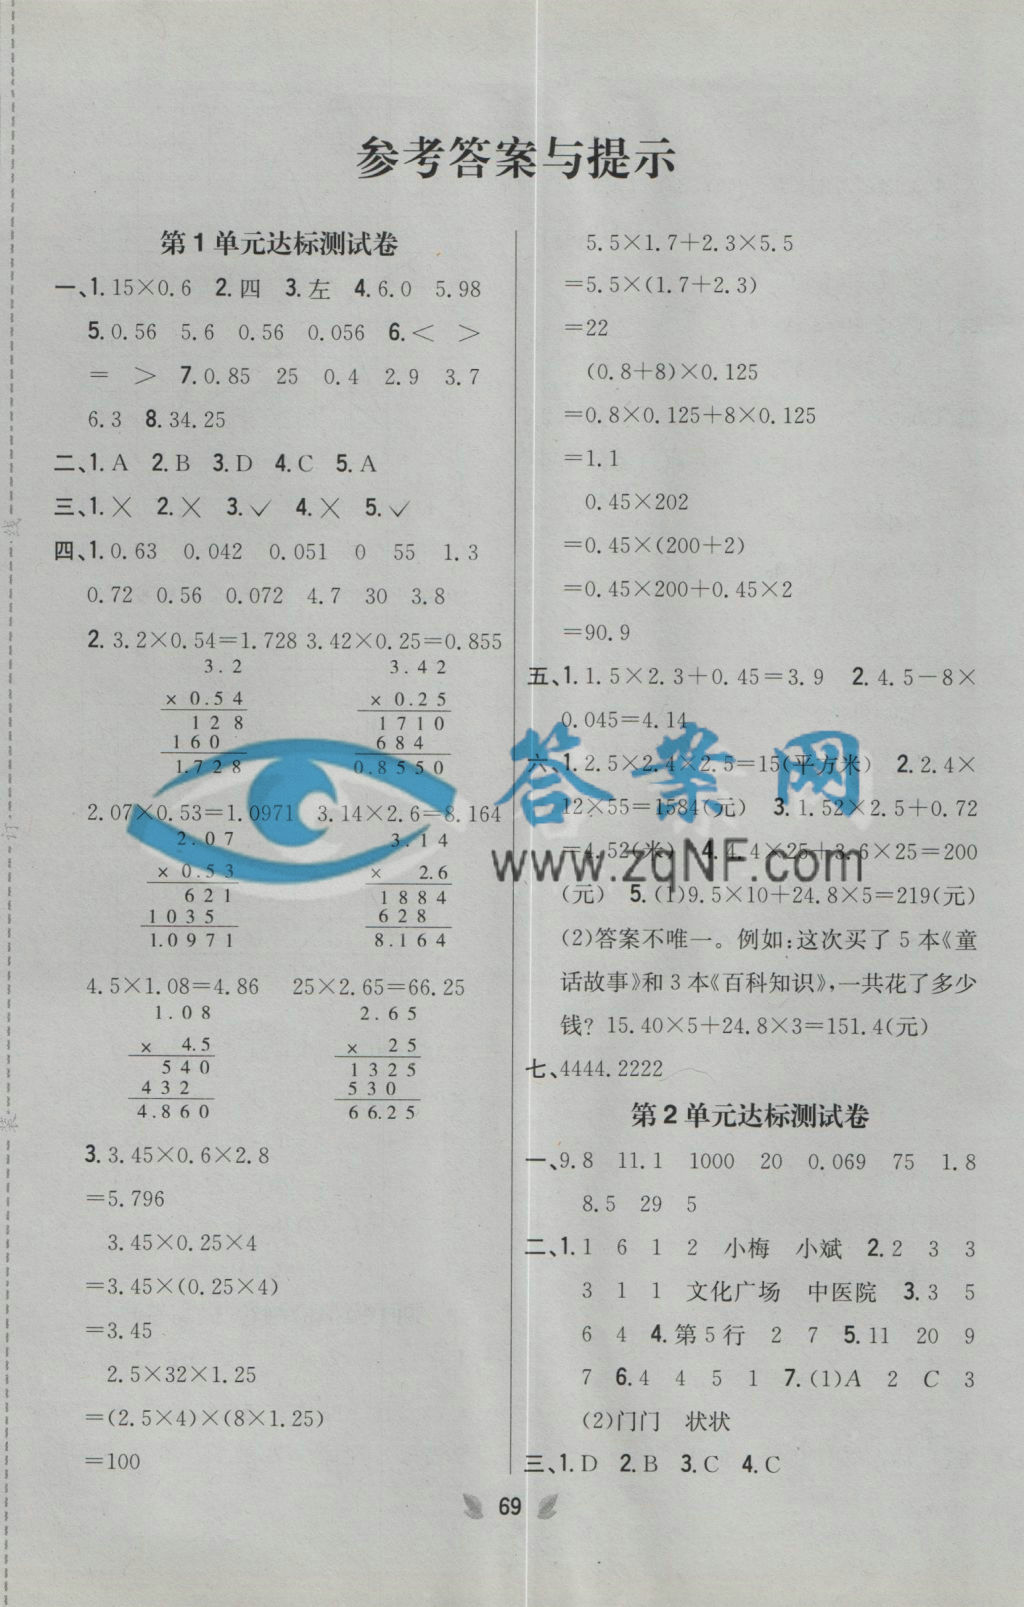 参考答案与提示
第1单元达标测试卷
一、1.15×0.6 2.四 3.左 4.6.0 5.98
5.0.56 5.6 0.56 0.056 6.< >
= > 7.0.85 25 0.4 2.9 3.7
6.3 8.34.25
二、1.A 2.B 3.D 4.C 5.A
三、1.× 2.× 3.✓ 4.× 5.✓
四、1.0.63 0.042 0.051 0 55 1.3
0.72 0.56 0.072 4.7 30 3.8
2.3.2×0.54=1.728 3.42×0.25=0.855
3.2 3.42
× 0.54 × 0.25
128 1710
160 684
1.728 0.8550
2.07×0.53=1.0971 3.14×2.6=8.164
2.07 3.14
× 0.53 × 2.6
621 1884
1035 628
1.0971 8.164
4.5×1.08=4.86 25×2.65=66.25
1.08 2.65
× 4.5 × 25
540 1325
432 530
4.860 66.25
3.3.45×0.6×2.8
=5.796
3.45×0.25×4
=3.45×(0.25×4)
=3.45
2.5×32×1.25
=(2.5×4)×(8×1.25)
=100
5.5×1.7+2.3×5.5
=5.5×(1.7+2.3)
=22
(0.8+8)×0.125
=0.8×0.125+8×0.125
=1.1
0.45×202
=0.45×(200+2)
=0.45×200+0.45×2
=90.9
五、1.1.5×2.3+0.45=3.9 2.4.5-8×
0.045=4.14
六、1.2.5×2.4×2.5=15(平方米) 2.2.4×
12×55=1584(元) 3.1.52×2.5+0.72
=4.52(米) 4.4.4×25+3.6×25=200
(元) 5.(1)9.5×10+24.8×5=219(元)
(2)答案不唯一。例如:这次买了5本《童
话故事》和3本《百科知识》,一共花了多少
钱? 15.40×5+24.8×3=151.4(元)
七、4444.2222
第2单元达标测试卷
一、9.8 11.1 1000 20 0.069 75 1.8
8.5 29 5
二、1.1 6 1 2 小梅 小斌 2.2 3 3
3 1 1 文化广场 中医院 3.3 5
6 4 4.第5行 2 7 5.11 20 9
7 6.4 4 5 1 7.(1)A 2 C 3
(2)门门 状状
三、1.D 2.B 3.C 4.C
69
答案网
www.zqNF.com
线
订
装